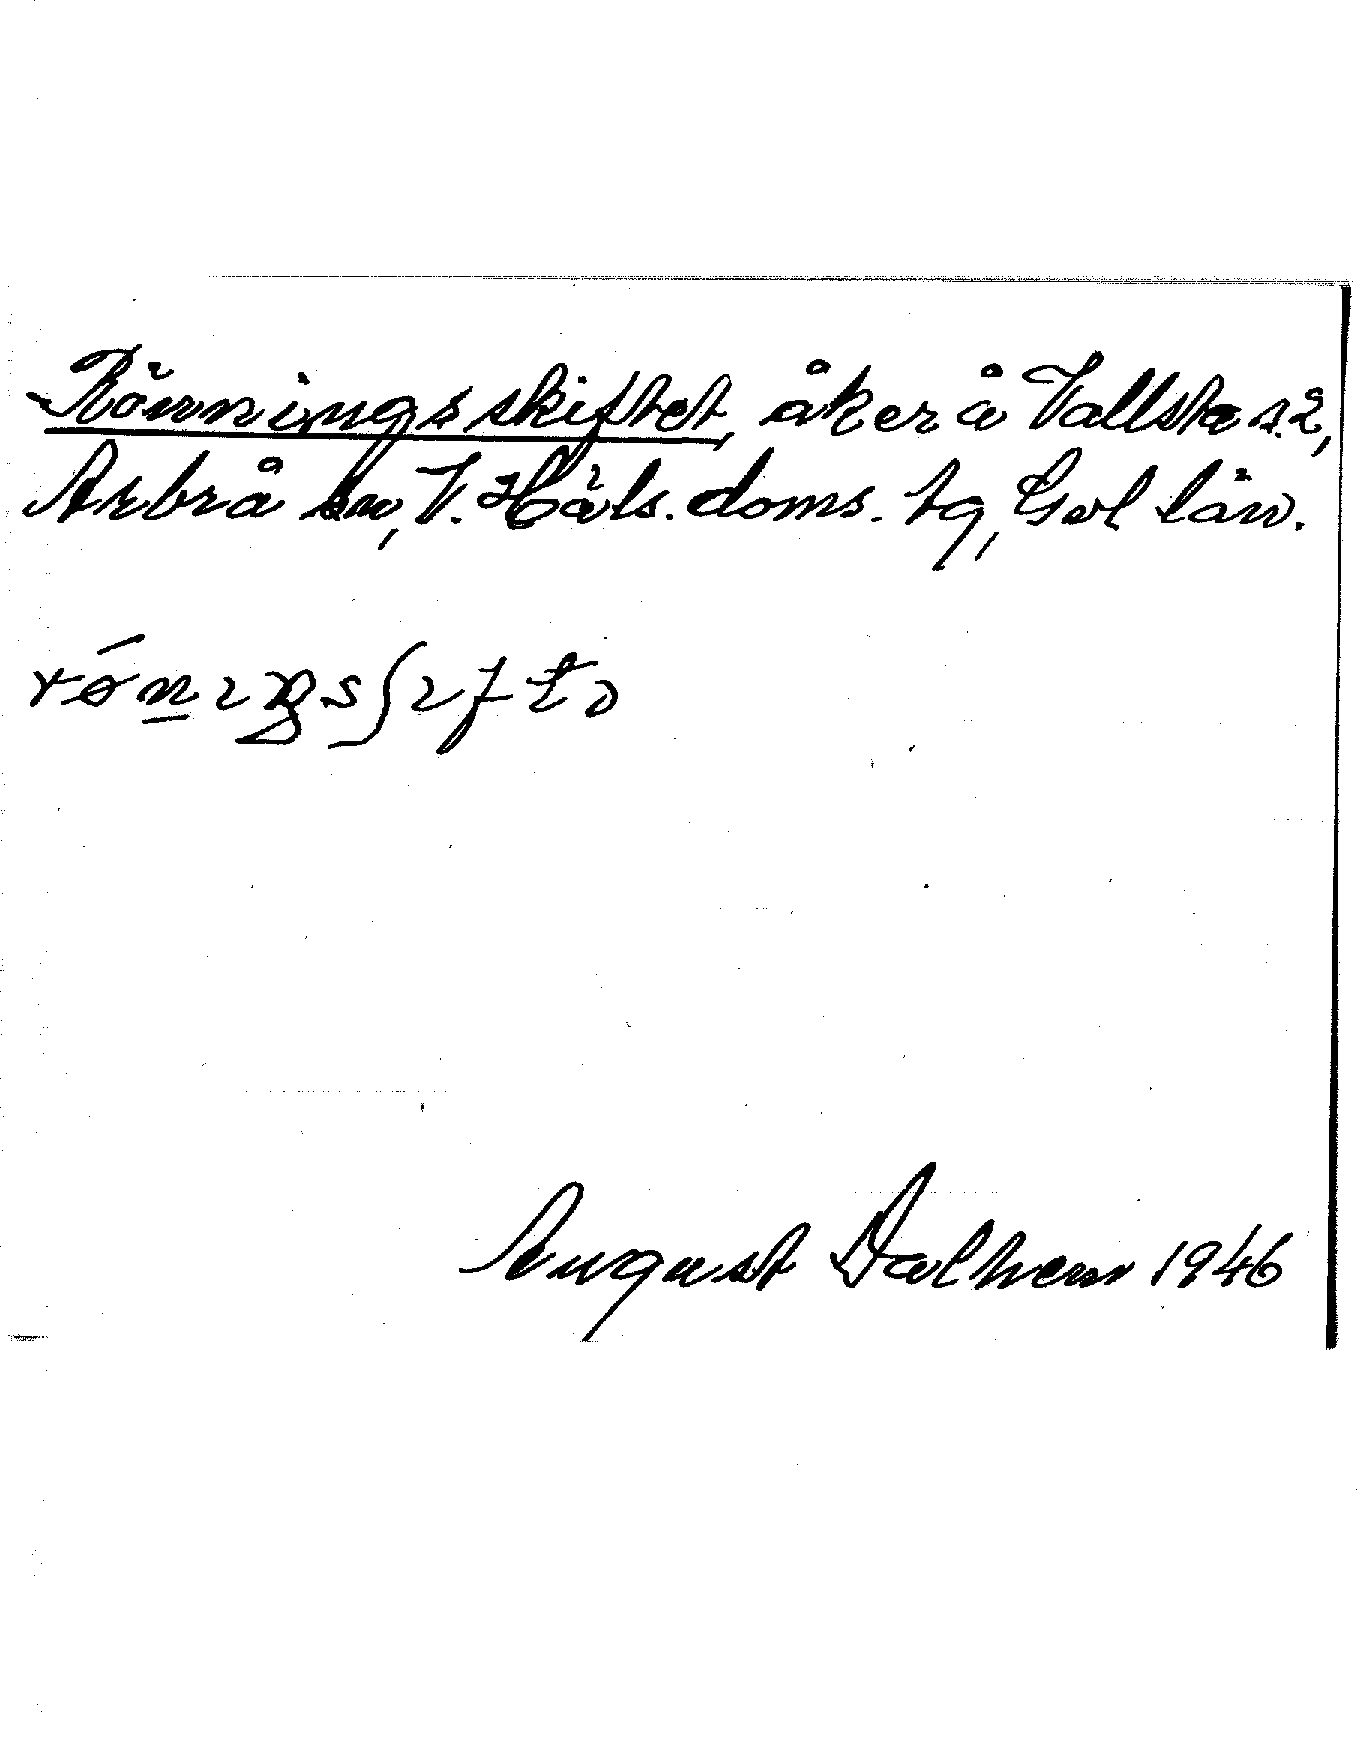 Rönningsskiftet, åker å Vallsta s. 2,
Arbrå sn, V. Häls. doms. tg, Gvl län.
August Dalhem 1946